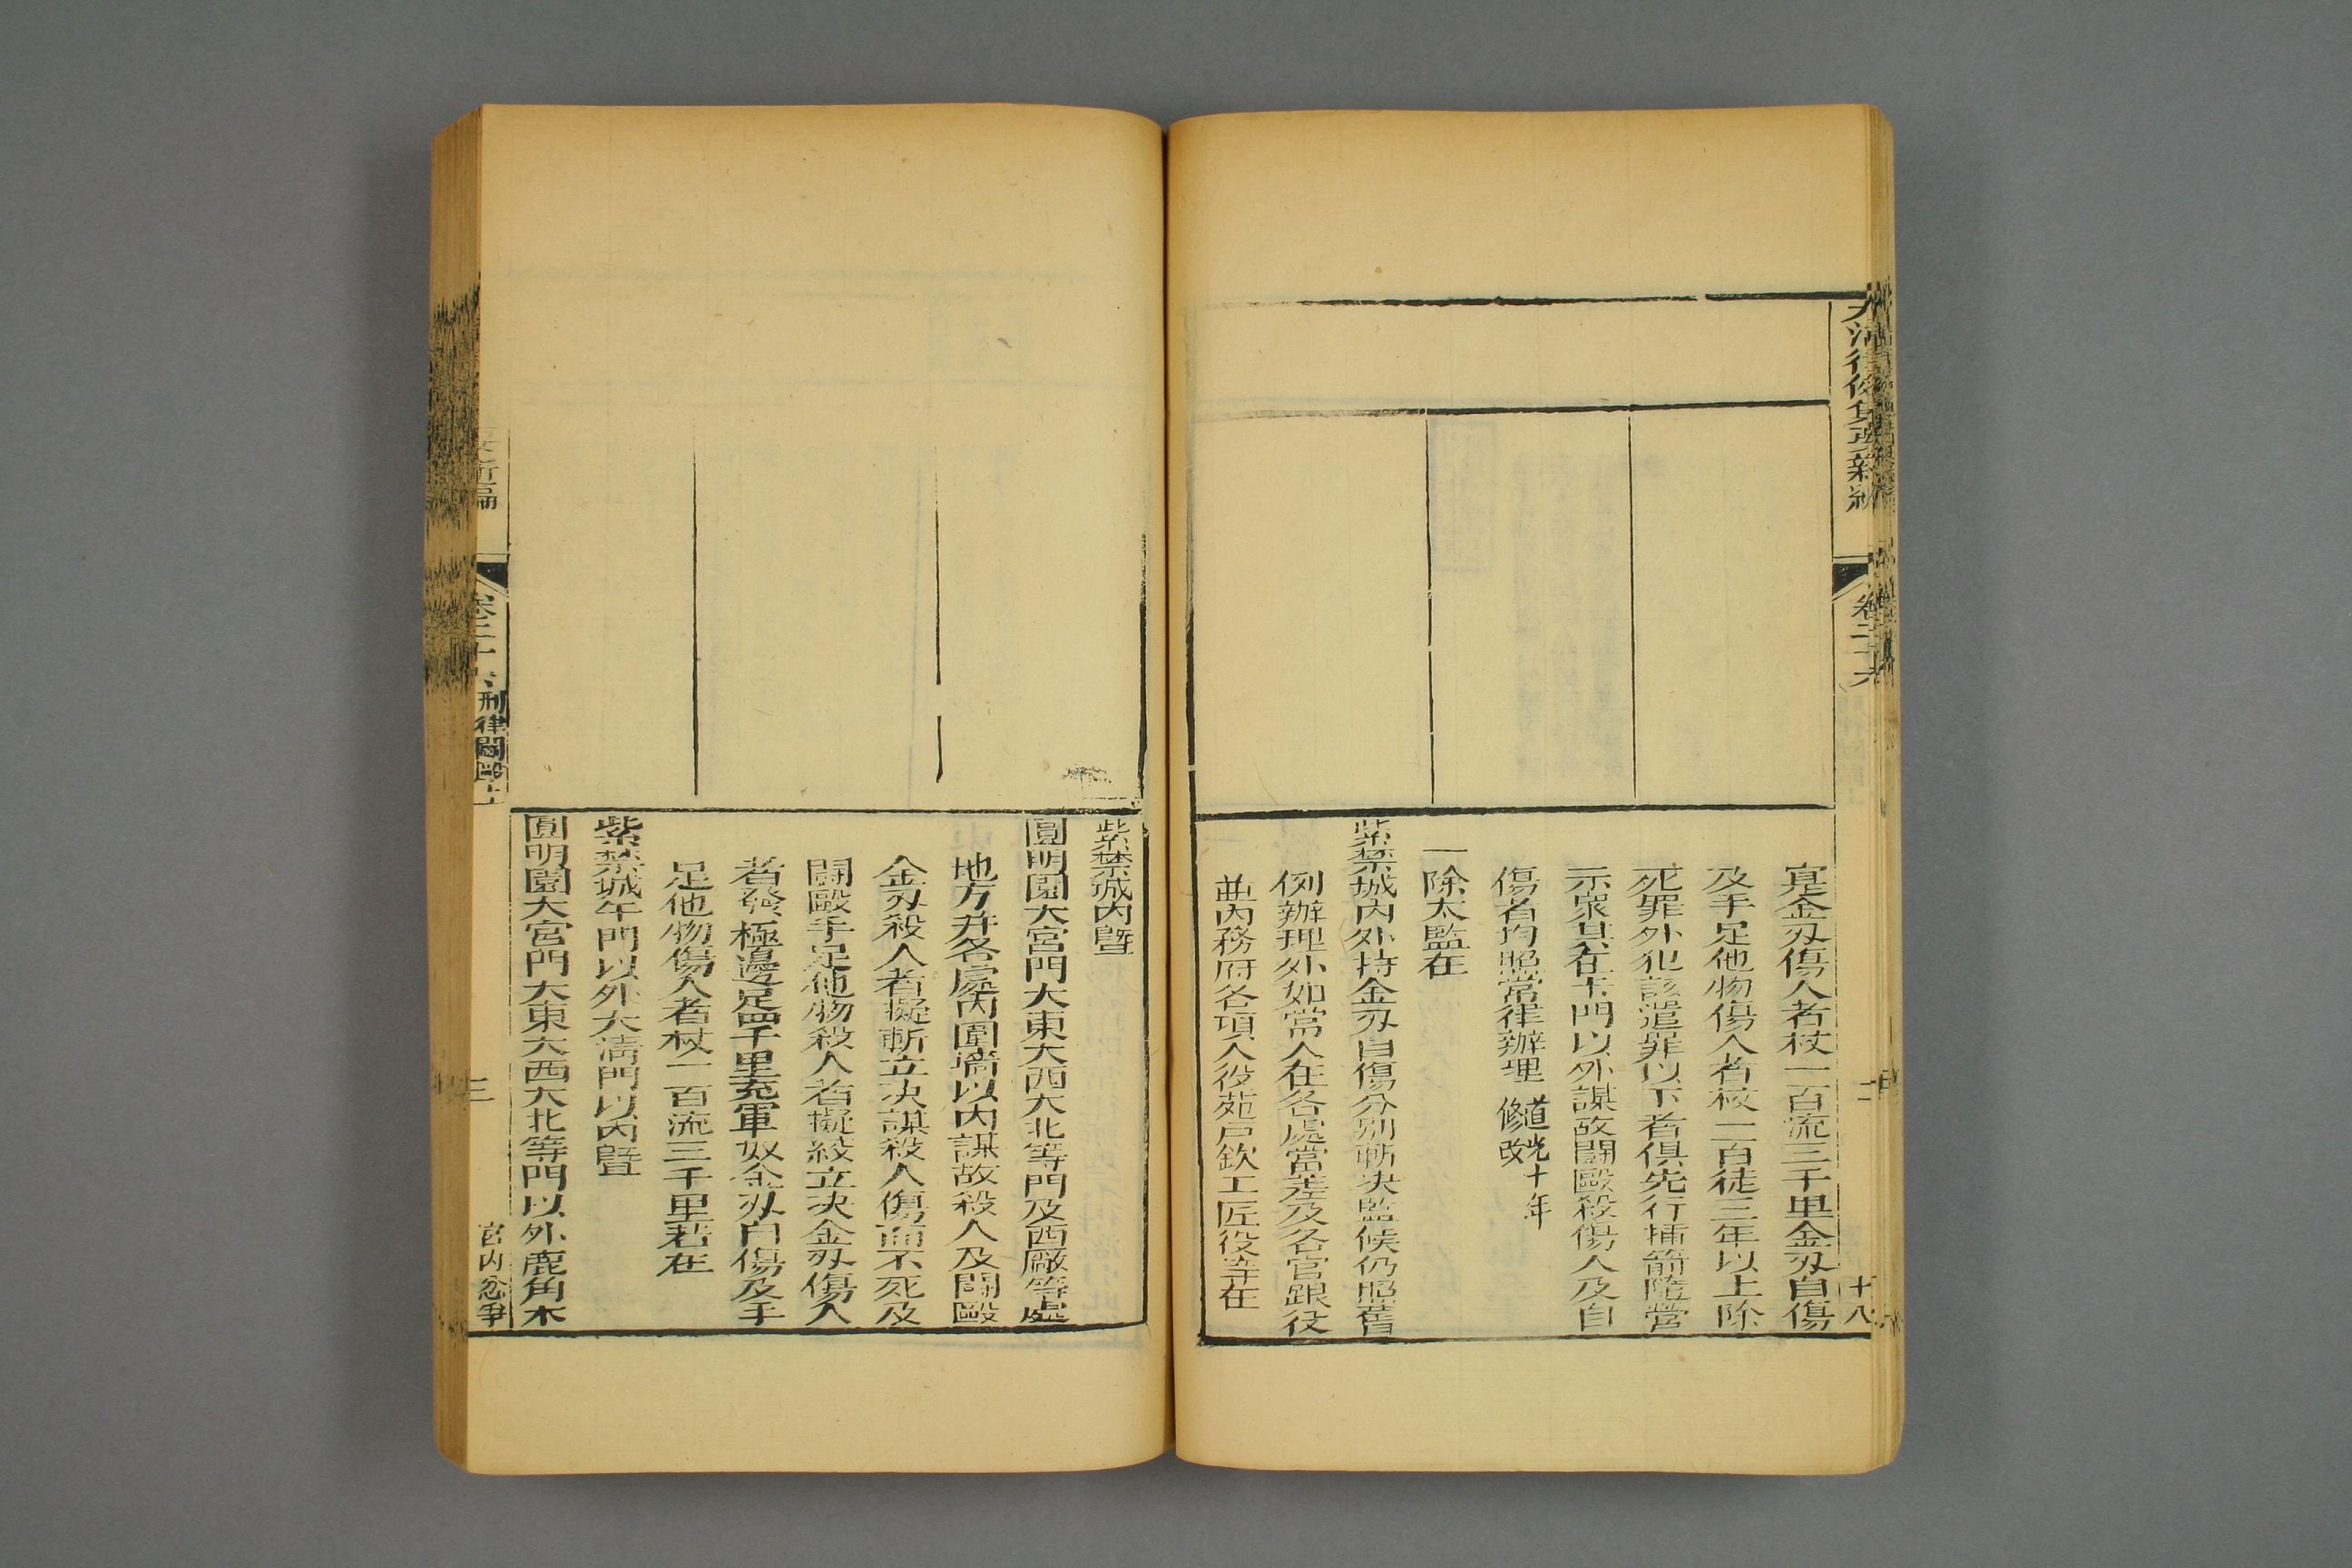 大清律例彙集便覽新編
卷二十六
二
十八
實金刃傷人者杖一百流三千里金刃自傷
及手足他物傷人者杖一百徒三年以上除
死罪外犯該遣罪以下者俱先行插箭隨營
示衆其在午門以外謀故鬭毆殺傷人及自
傷者均照常律辦理 道光十年
修改
一除太監在
紫禁城內外持金刃自傷分別斬決監候仍照舊
例辦理外如常人在各處當差及各官跟役
並內務府各項人役苑戶欽工匠役等在
紫禁城內曁
圓明園大宮門大東大西大北等門及西厰等處
地方并各處內圍墻以內謀故殺人及鬭毆
金刃殺人者擬斬立決謀殺人傷而不死及
鬭毆手足他物殺人者擬絞立決金刃傷人
者發極邊足四千里充軍奴金刃自傷及手
足他物傷人者杖一百流三千里若在
紫禁城午門以外大清門以內曁
圓明園大宮門大東大西大北等門以外鹿角木
新編
卷二十六
刑律鬭毆上
三
宮內忿爭